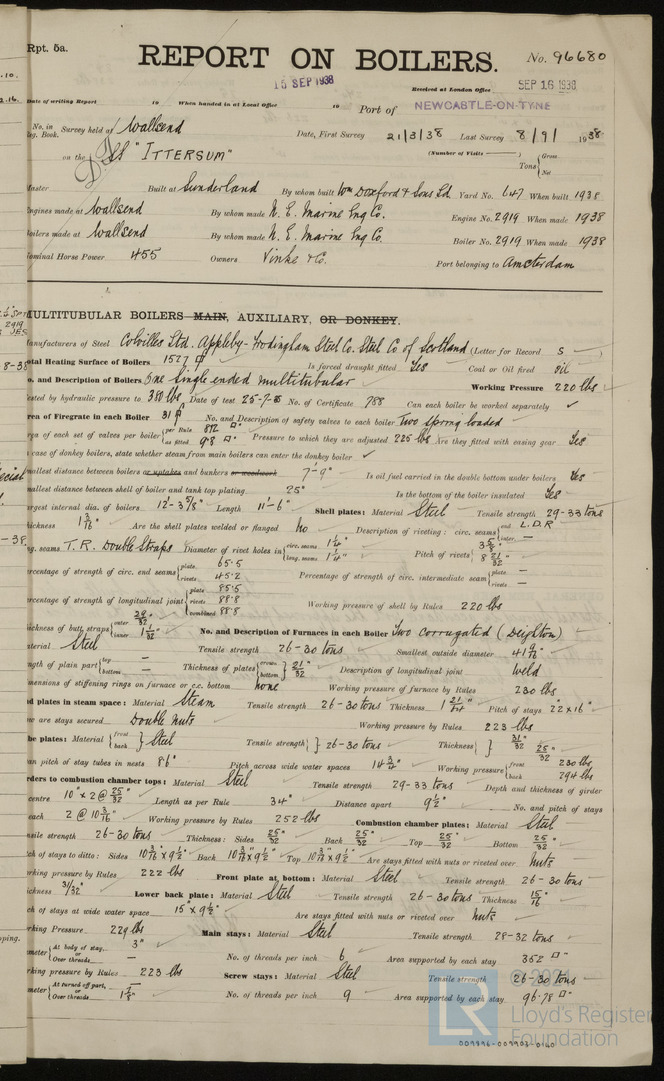 Rpt. 5a.
REPORT ON BOILERS.
No. 96680
15 SEP 1938
Received at London Office SEP 16 1938
Date of writing Report 19 When handed in at Local Office 19 Port of NEWCASTLE-ON-TYNE
No. in Survey held at Wallsend Date, First Survey 21/3/38 Last Survey 8/9/1938
Reg. Book.
(Number of Visits )
on the "ITTERSUM" Tons { Gross Net
Master Built at Sunderland By whom built Wm Doxford & Sons Ld Yard No. 647 When built 1938
Engines made at Wallsend By whom made N. E. Marine Eng Co. Engine No. 2919 When made 1938
Boilers made at Wallsend By whom made N. E. Marine Eng Co. Boiler No. 2919 When made 1938
Nominal Horse Power 455 Owners Vinke & Co. Port belonging to Amsterdam
MULTITUBULAR BOILERS MAIN, AUXILIARY, OR DONKEY.
Manufacturers of Steel Colvilles Ltd. Appleby-Frodingham Steel Co. Steel Co of Scotland (Letter for Record S )
Total Heating Surface of Boilers 1527 Is forced draught fitted Yes Coal or Oil fired oil
No. and Description of Boilers One Single ended multitubular Working Pressure 220 lbs
Tested by hydraulic pressure to 380 lbs Date of test 25-7-38 No. of Certificate 788 Can each boiler be worked separately ✓
Area of Firegrate in each Boiler 31 No. and Description of safety valves to each boiler Two spring loaded
Area of each set of valves per boiler { per Rule as fitted 9.8 Pressure to which they are adjusted 225 lbs Are they fitted with easing gear Yes
In case of donkey boilers, state whether steam from main boilers can enter the donkey boiler ✓
Smallest distance between boilers or uptakes and bunkers or woodwork 7'-9" Is oil fuel carried in the double bottom under boilers Yes
Smallest distance between shell of boiler and tank top plating 25" Is the bottom of the boiler insulated Yes
Largest internal dia. of boilers 12'-3 5/8" Length 11'-6" Shell plates: Material Steel Tensile strength 29-33 tons
Thickness 1 3/16" Are the shell plates welded or flanged No Description of riveting: circ. seams { end L.D.R inter. —
long. seams T.R. Double Straps Diameter of rivet holes in { circ. seams 1 1/4" long. seams 1 1/4" Pitch of rivets { 3 5/8" 8 21/32"
Percentage of strength of circ. end seams { plate 65.5 rivets 45.2 Percentage of strength of circ. intermediate seam { plate — rivets —
Percentage of strength of longitudinal joint { plate 85.5 rivets 88.8 combined 88.8 Working pressure of shell by Rules 220 lbs
Thickness of butt straps { outer 29/32" inner 1 1/32" No. and Description of Furnaces in each Boiler Two corrugated (Deighton)
Material Steel Tensile strength 26-30 tons Smallest outside diameter 41 9/16"
Length of plain part { top — bottom — Thickness of plates { crown bottom } 21/32" Description of longitudinal joint Weld
Dimensions of stiffening rings on furnace or c.c. bottom none Working pressure of furnace by Rules 230 lbs
End plates in steam space: Material Steam Tensile strength 26-30 tons Thickness Pitch of stays 22 x 16"
How are stays secured Double Nuts Working pressure by Rules 223 lbs
Tube plates: Material { front back } Steel Tensile strength } 26-30 tons Thickness { 31/32" 25/32"
Mean pitch of stay tubes in nests Pitch across wide water spaces 14 3/4" Working pressure { front 230 lbs. back 294 lbs
Girders to combustion chamber tops: Material Steel Tensile strength 29-33 tons Depth and thickness of girder
at centre 10" x 2 @ 25/32" Length as per Rule 34" Distance apart 9 1/2" No. and pitch of stays
in each 2 @ 10 3/16" Working pressure by Rules 252 lbs Combustion chamber plates: Material Steel
Tensile strength 26-30 tons Thickness: Sides 25/32" Back 25/32" Top 25/32" Bottom 25/32"
Pitch of stays to ditto: Sides 10 3/16" x 9 1/2" Back 10 3/16" x 9 1/2" Top 10 3/16" x 9 1/2" Are stays fitted with nuts or riveted over Nuts
Working pressure by Rules 222 lbs Front plate at bottom: Material Steel Tensile strength 26-30 tons
Thickness 31/32" Lower back plate: Material Steel Tensile strength 26-30 tons Thickness 15/16"
Pitch of stays at wide water space 15" x 9 1/2" Are stays fitted with nuts or riveted over Nuts
Working Pressure 229 lbs Main stays: Material Steel Tensile strength 28-32 tons
Diameter { At body of stay, 3" Over threads — No. of threads per inch 6 Area supported by each stay 352
Working pressure by Rules 223 lbs Screw stays: Material Steel Tensile strength 26-30 tons
Diameter { At turned off part, — Over threads 1 7/8" No. of threads per inch 9 Area supported by each stay 96.78
© 2021
LR
Lloyd's Register
Foundation
009896-009903-0160